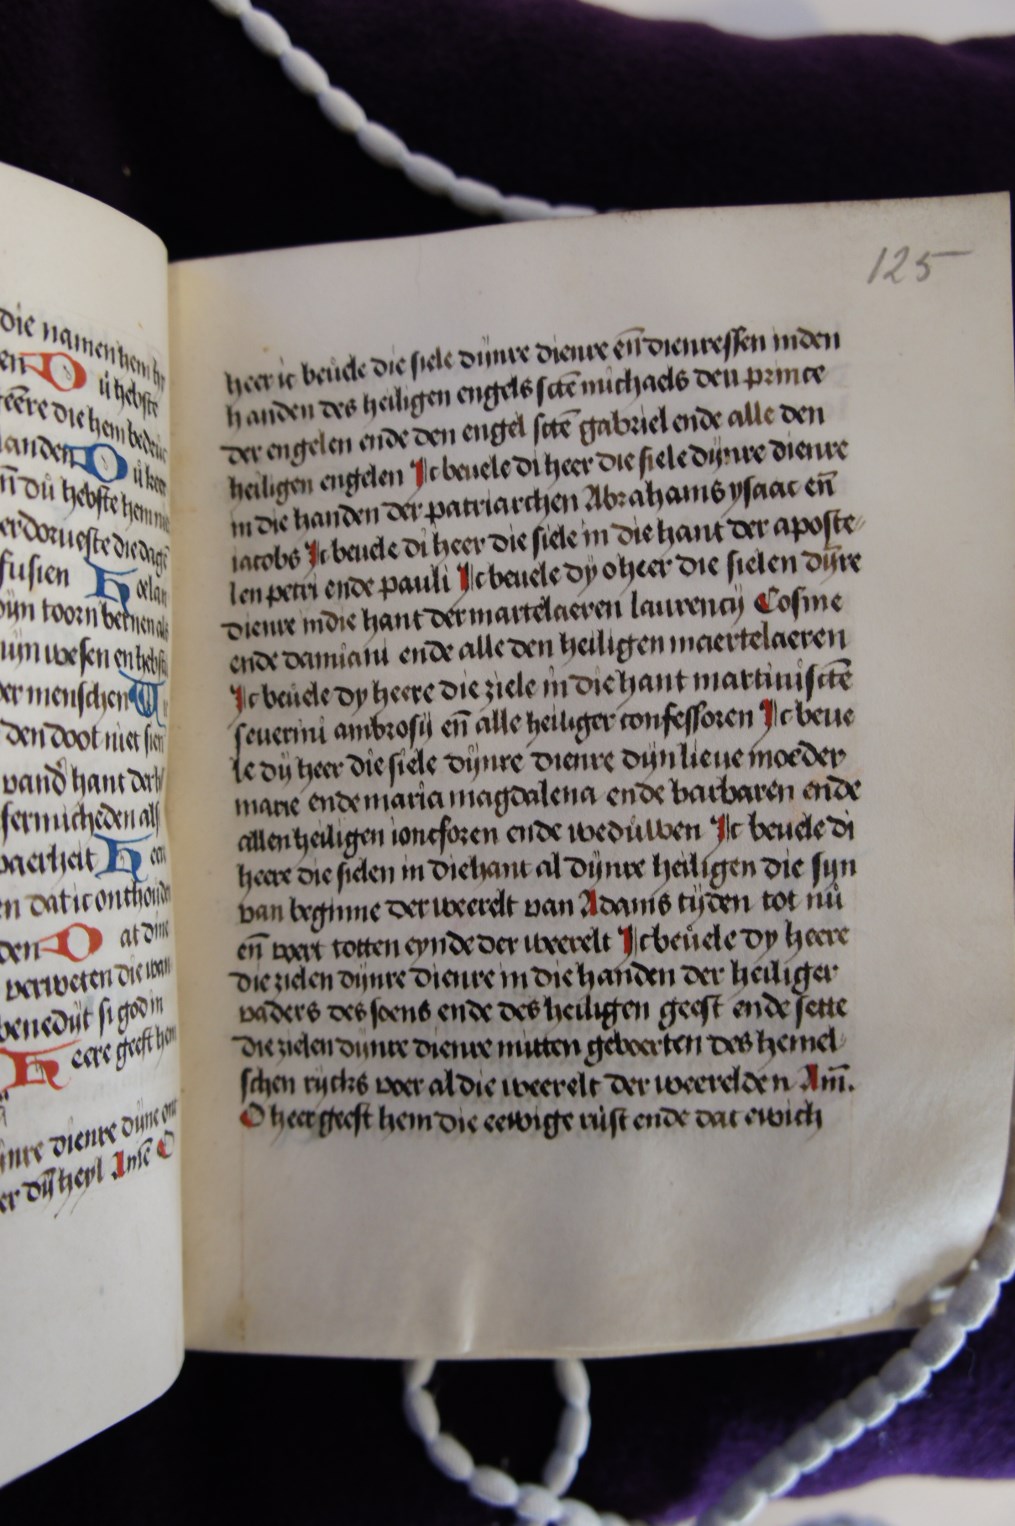 die namen hem
en D u hebste
teere die hem
landen D u
en du hebste hem
die dage
fusien H
dyn toorn
uyn wesen en
der menschen
den doot niet sien
vand hant der
waerheit H
en dat ic
den D at dine
verweten die van
benedyt si god in
H eere geeft hem
dienre dyne
er dy heyl Inse O
125
heer ic beuele die siele dijnre dienre en̄ dienressen inden
handen des heiligen engels sctē michaels den prince
der engelen ende den engel sctē gabriel ende alle den
heiligen engelen Ic beuele di heer die siele dijnre dienre
in die handen der patriarchen Abrahams ysaac en̄
iacobs Ic beuele di heer die siele in die hant der aposte-
len petri ende pauli Ic beuele dy o heer die sielen dijre
dienre in die hant der martelaeren laurencij Cosme
ende damiani ende alle den heiligen maertelaeren
Ic beuele dy heere die ziele in die hant martinus sctē
seuerini ambrosij en̄ alle heiliger confessoren Ic beue
le dij heer die siele dijnre dienre dijn lieue moeder
marie ende maria magdalena ende barbaren ende
allen heiligen ioncforen ende weduwen Ic beuele di
heere die sielen in die hant al dijnre heiligen die syn
van beginne der weerelt van Adams tijden tot nu
en̄ voert totten eynde der weerelt Ic beuele dy heere
die zielen dijnre dienre in die handen der heiliger
vaders des soens ende des heiligen geest ende sette
die zielen dijnre dienre mitten geboerten des hemel-
schen rijcks voer al die weerelt der weerelden Am̄.
O heer geeft hem die eewige rust ende dat ewich